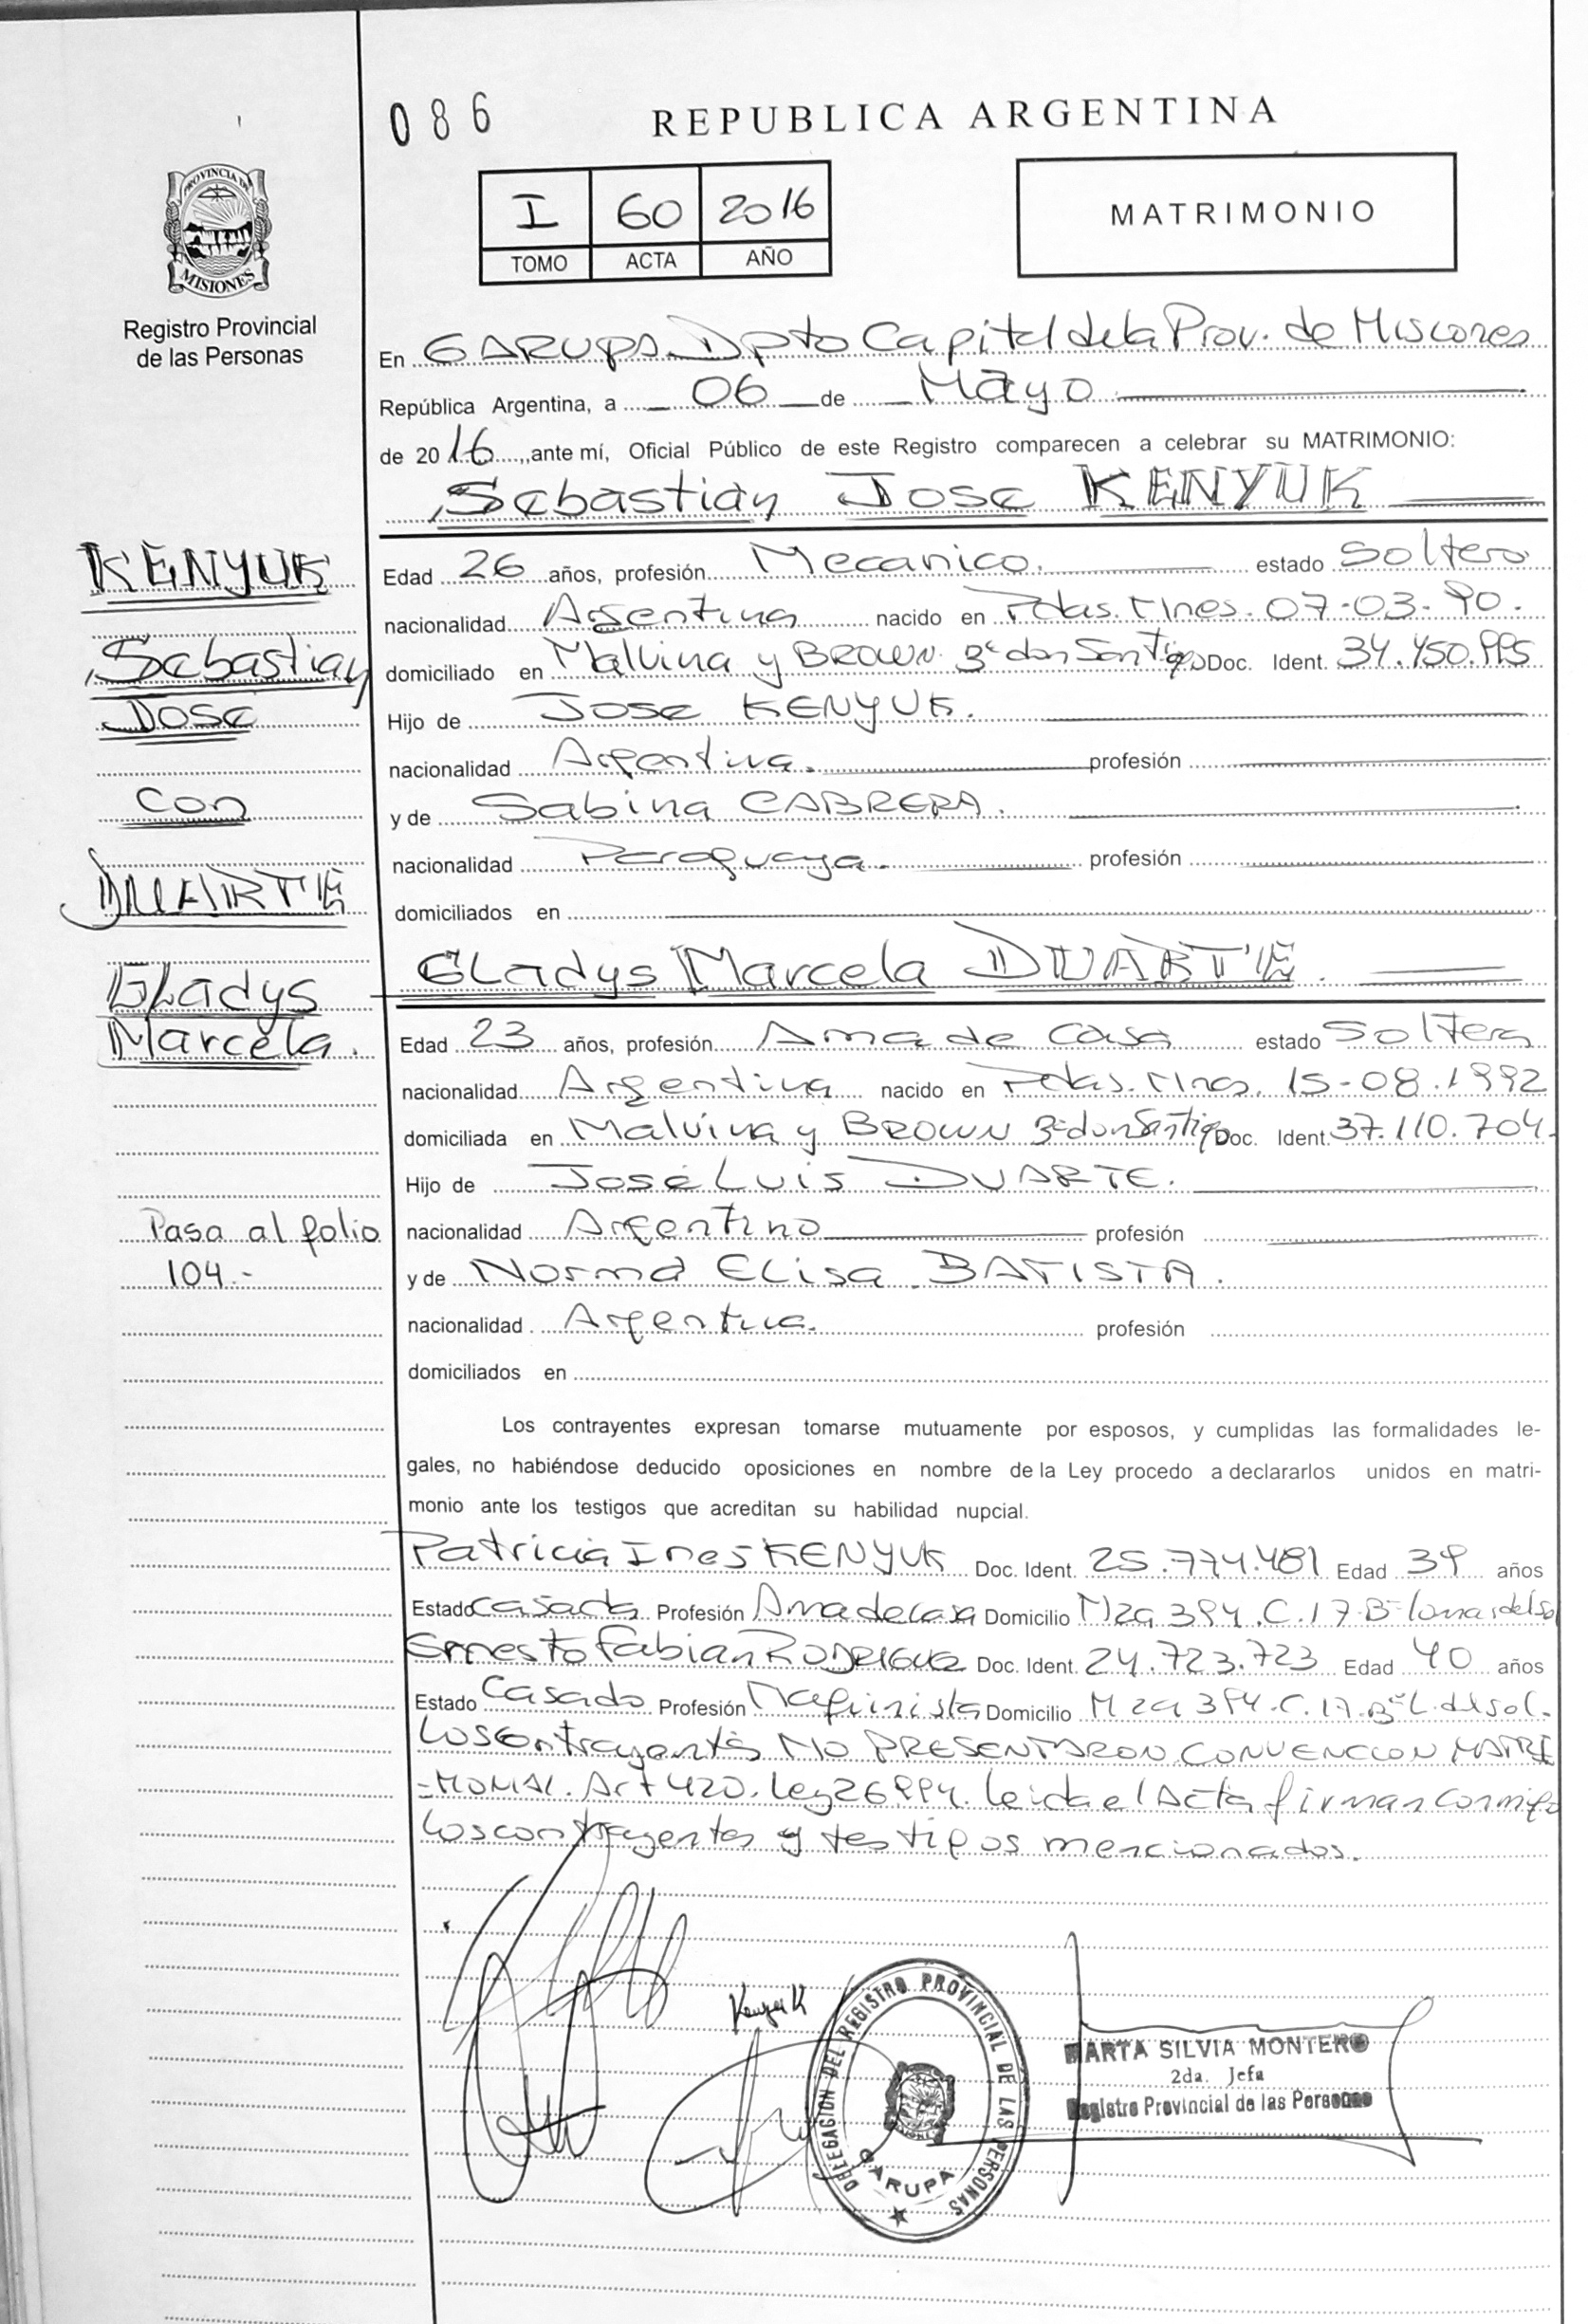 086
REPUBLICA ARGENTINA
PROVINCIA DE
MISIONES
Registro Provincial
de las Personas
I 60 2016
TOMO ACTA AÑO
MATRIMONIO
En GARUPA Dpto Capital de la Prov. de Misiones
República Argentina, a 06 de Mayo
de 2016, ante mí, Oficial Público de este Registro comparecen a celebrar su MATRIMONIO:
Sebastian Jose KENYUK
KENYUK
Sebastian
Jose
con
DUARTE
Gladys
Marcela.
Edad 26 años, profesión Mecanico. estado Soltero
nacionalidad Argentina nacido en Pdas. Mnes. 07-03-90.
domiciliado en Malvina y BROWN Bº don Santiago Doc. Ident. 34.450.995
Hijo de Jose KENYUK.
nacionalidad Argentina. profesión
y de Sabina CABRERA.
nacionalidad Paraguaya. profesión
domiciliados en
Gladys Marcela DUARTE.
Edad 23 años, profesión Ama de Casa estado Soltera
nacionalidad Argentina nacido en Pdas. Mnes. 15-08.1992
domiciliada en Malvina y BROWN Bº don Santiago Doc. Ident. 37.110.704.
Hijo de José Luis DUARTE.
Pasa al folio
104.-
nacionalidad Argentino profesión
y de Norma Elisa BATISTA.
nacionalidad Argentina. profesión
domiciliados en
Los contrayentes expresan tomarse mutuamente por esposos, y cumplidas las formalidades le-
gales, no habiéndose deducido oposiciones en nombre de la Ley procedo a declararlos unidos en matri-
monio ante los testigos que acreditan su habilidad nupcial.
Patricia Ines KENYUK Doc. Ident. 25.774.481 Edad 39 años
Estado Casada Profesión Ama de casa Domicilio Mza 394. C. 17. Bº lomas del sol
Ernesto Fabian RODRIGUEZ Doc. Ident. 24.723.723 Edad 40 años
Estado Casado Profesión Maquinista Domicilio Mza 394. C. 17. Bº L. del sol.
Los Contrayentes NO PRESENTARON CONVENCION MATRI
-MONIAL. Art 420. Ley 26994. leida el Acta firman conmigo
los contrayentes y testigos mencionados.
Kenyuk
DELEGACION DEL REGISTRO PROVINCIAL DE LAS PERSONAS
GARUPA
MARTA SILVIA MONTERO
2da. Jefa
Registro Provincial de las Personas